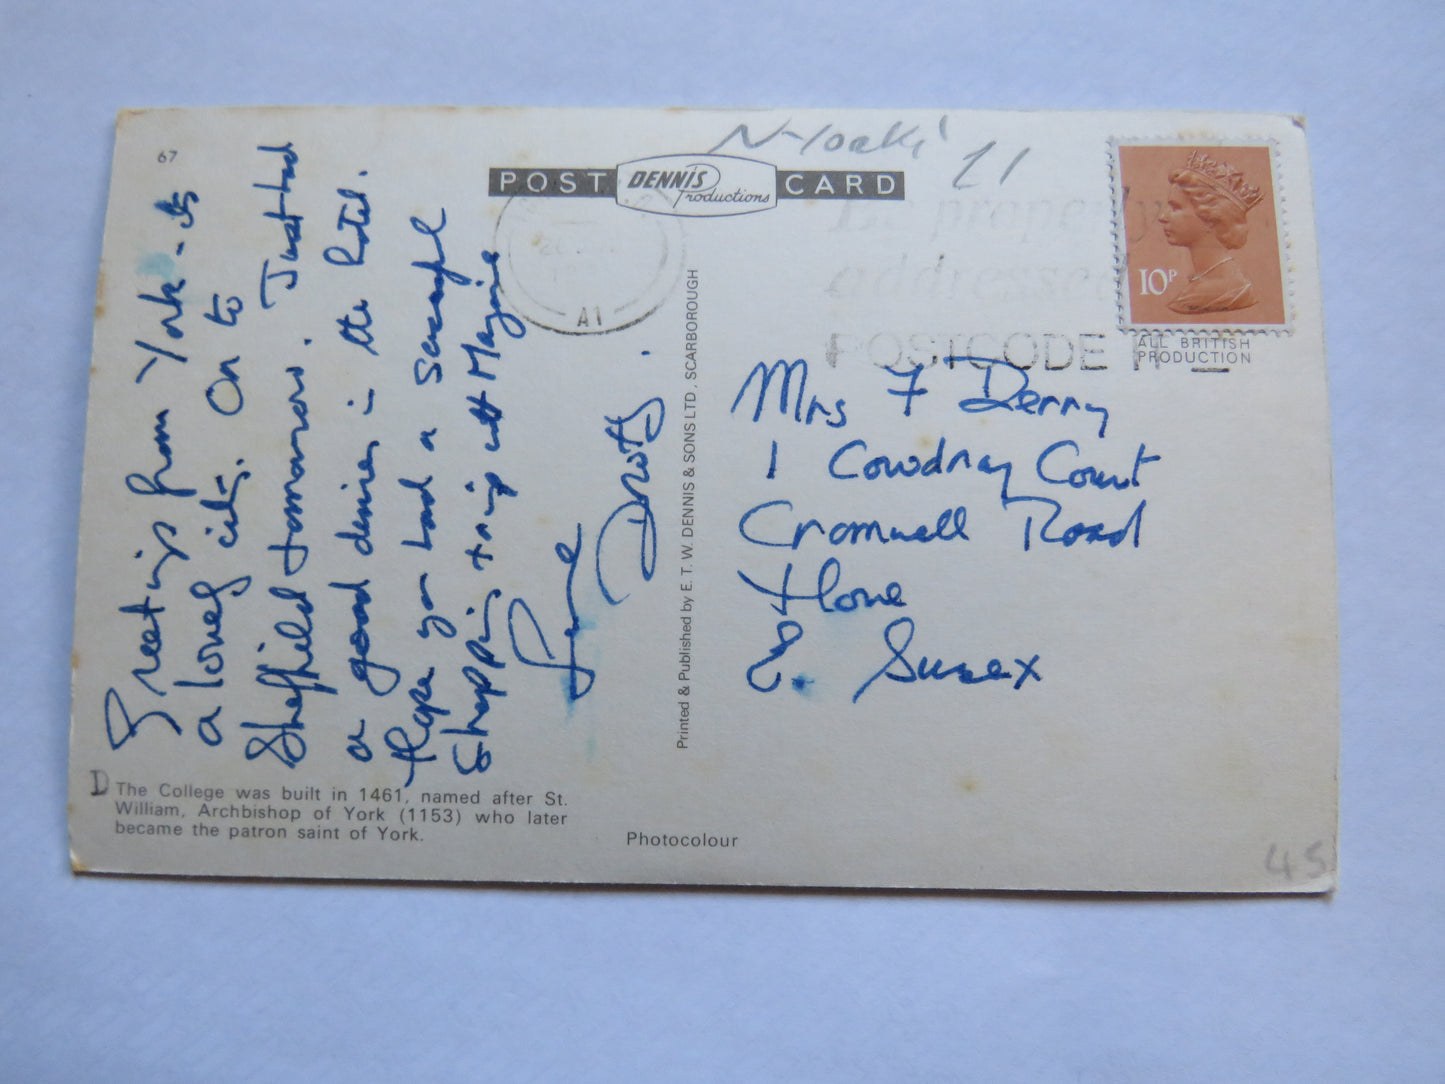 67
N-Yorks
£1
POST DENNIS Productions CARD
A1
Be properly
addressed
POSTCODE IT
10P
ALL BRITISH
PRODUCTION
Greetings from York - its
a lovely city. On to
Sheffield tomorrow. Just had
a good dinner in the hotel.
Hope you had a successful
Shopping trip with Marjorie
Love
Dowty.
Mrs F Denny
1 Cowdray Court
Cromwell Road
Hove
E. Sussex
Printed & Published by E. T. W. DENNIS & SONS LTD., SCARBOROUGH
D
The College was built in 1461, named after St.
William, Archbishop of York (1153) who later
became the patron saint of York.
Photocolour
45